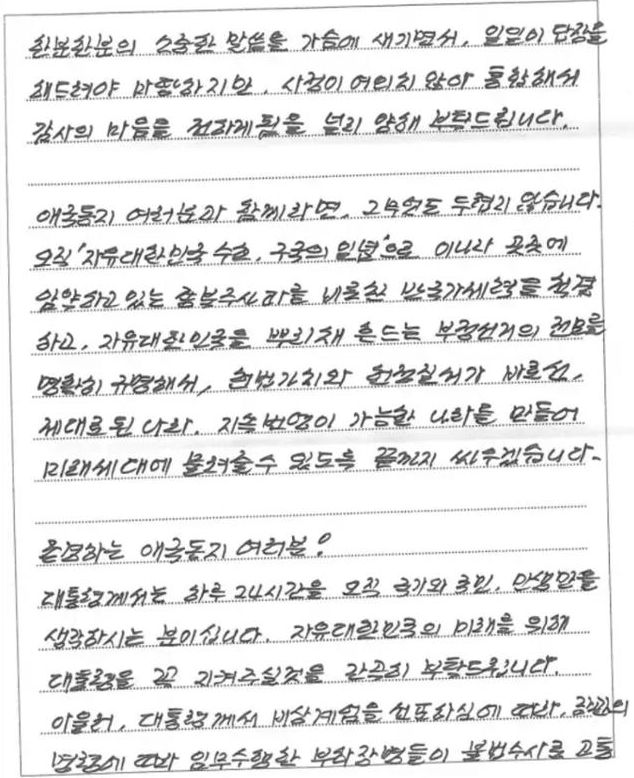 한분한분의 소중한 말씀을 가슴에 새기면서, 일일이 답장을
해드려야 마땅하지만, 사정이 여의치 않아 통합해서
감사의 마음을 전하게됨을 널리 양해 부탁드립니다.
애국동지 여러분과 함께라면, 그무엇도 두렵지 않습니다.
오직 '자유대한민국 수호, 구국의 일념'으로 이나라 곳곳에
암약하고 있는 종북주사파를 비롯한 반국가세력을 척결
하고, 자유대한민국을 뿌리채 흔드는 부정선거의 전모를
명확히 규명해서, 헌법가치와 헌정질서가 바로선,
제대로된 나라, 지속번영이 가능한 나라를 만들어
미래세대에 물려줄수 있도록 끝까지 싸우겠습니다.
존경하는 애국동지 여러분!
대통령께서는 하루 24시간을 오직 국가와 국민, 민생만을
생각하시는 분이십니다. 자유대한민국의 미래를 위해
대통령을 꼭 지켜주실것을 간곡히 부탁드립니다.
아울러, 대통령께서 비상계엄을 선포하심에 따라, 장관의
명령에 따라 임무수행한 부하장병들이 불법수사로 고통